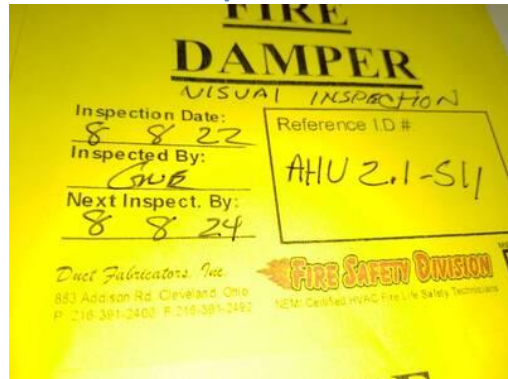 FIRE
DAMPER
VISUAL INSPECTION
Inspection Date:
8 8 22
Inspected By:
Next Inspect. By:
8 8 24
Reference I.D #
AHU 2.1-S11
Duct Fabricators, Inc.
883 Addison Rd. Cleveland, Ohio
P: 216-391-2400 F: 216-391-2492
FIRE SAFETY DIVISION
NEMI Certified HVAC Fire Life Safety Technicians